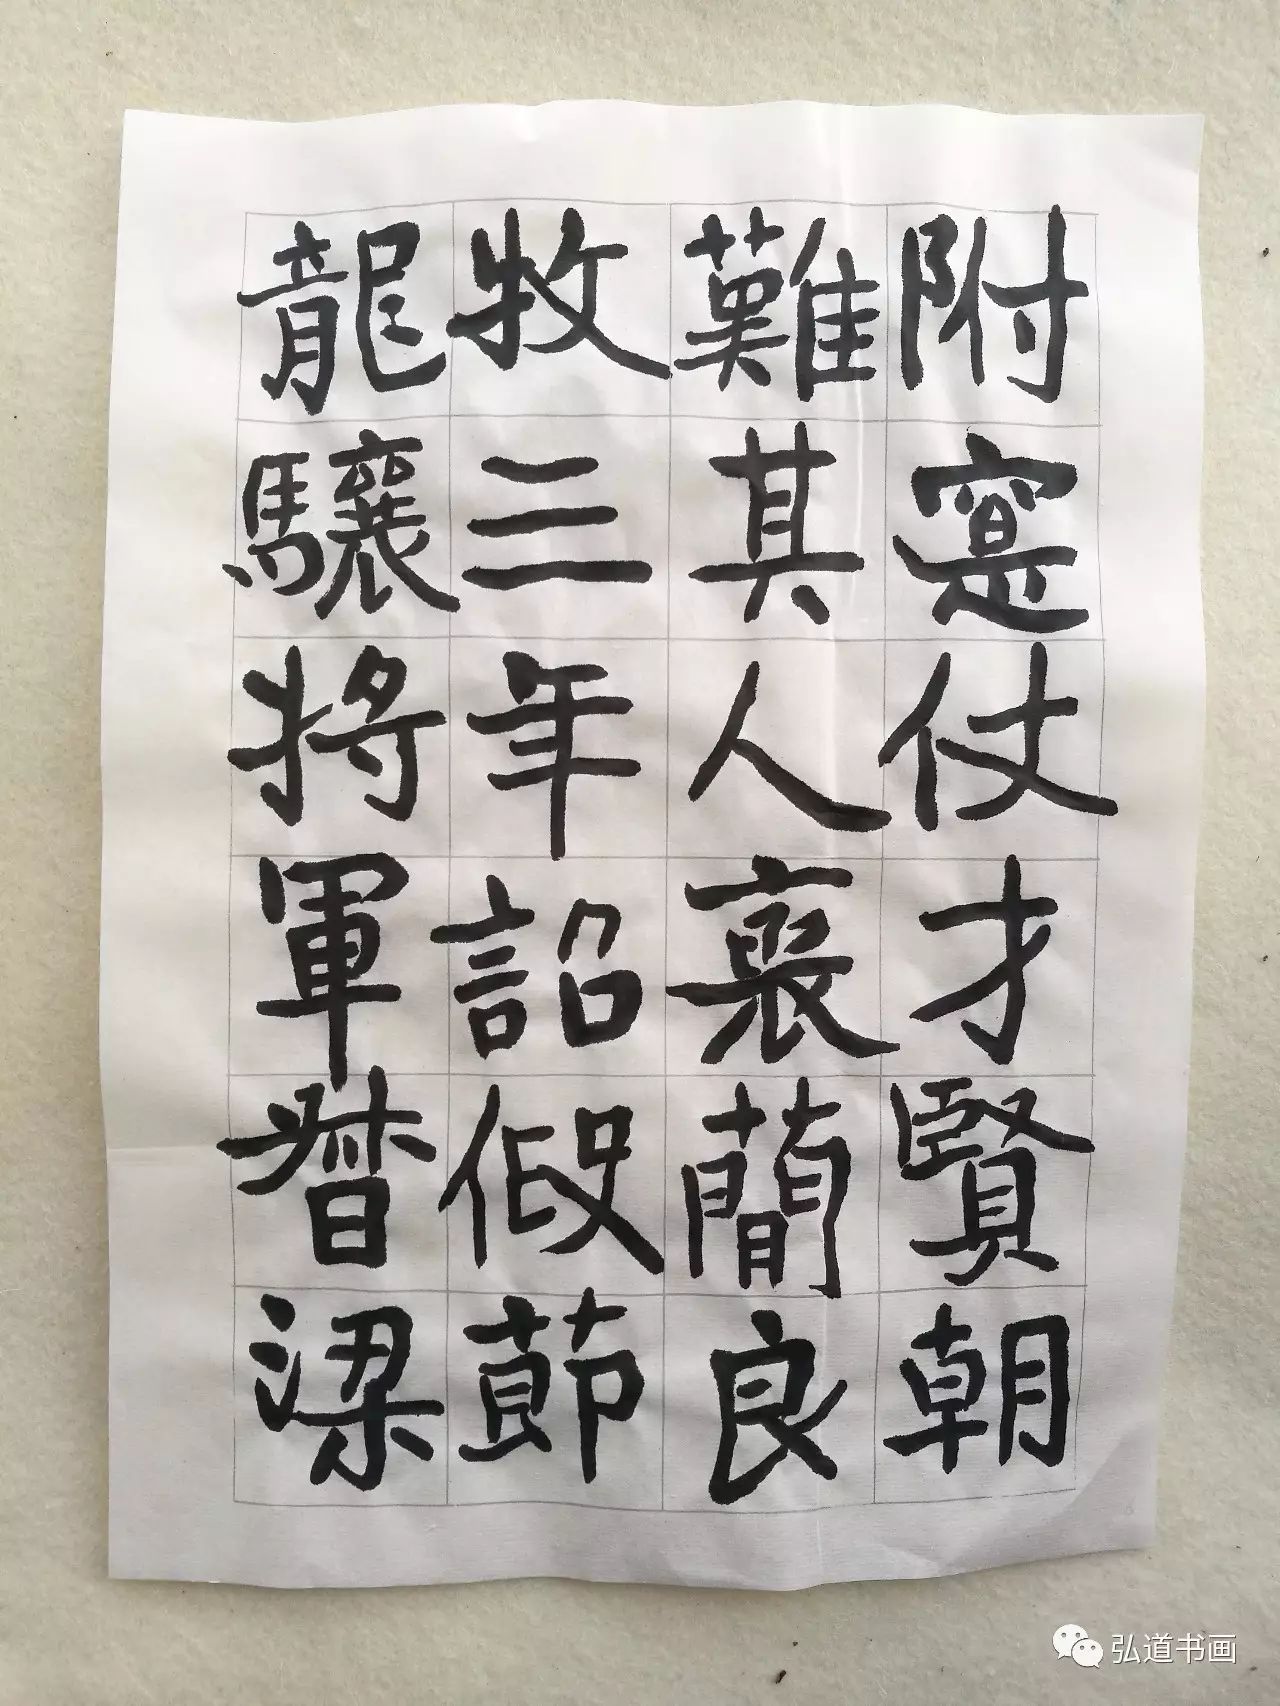 附寔仗才賢朝
難其人裦簡良
牧三年詔假節
龍驤將軍督梁
弘道书画